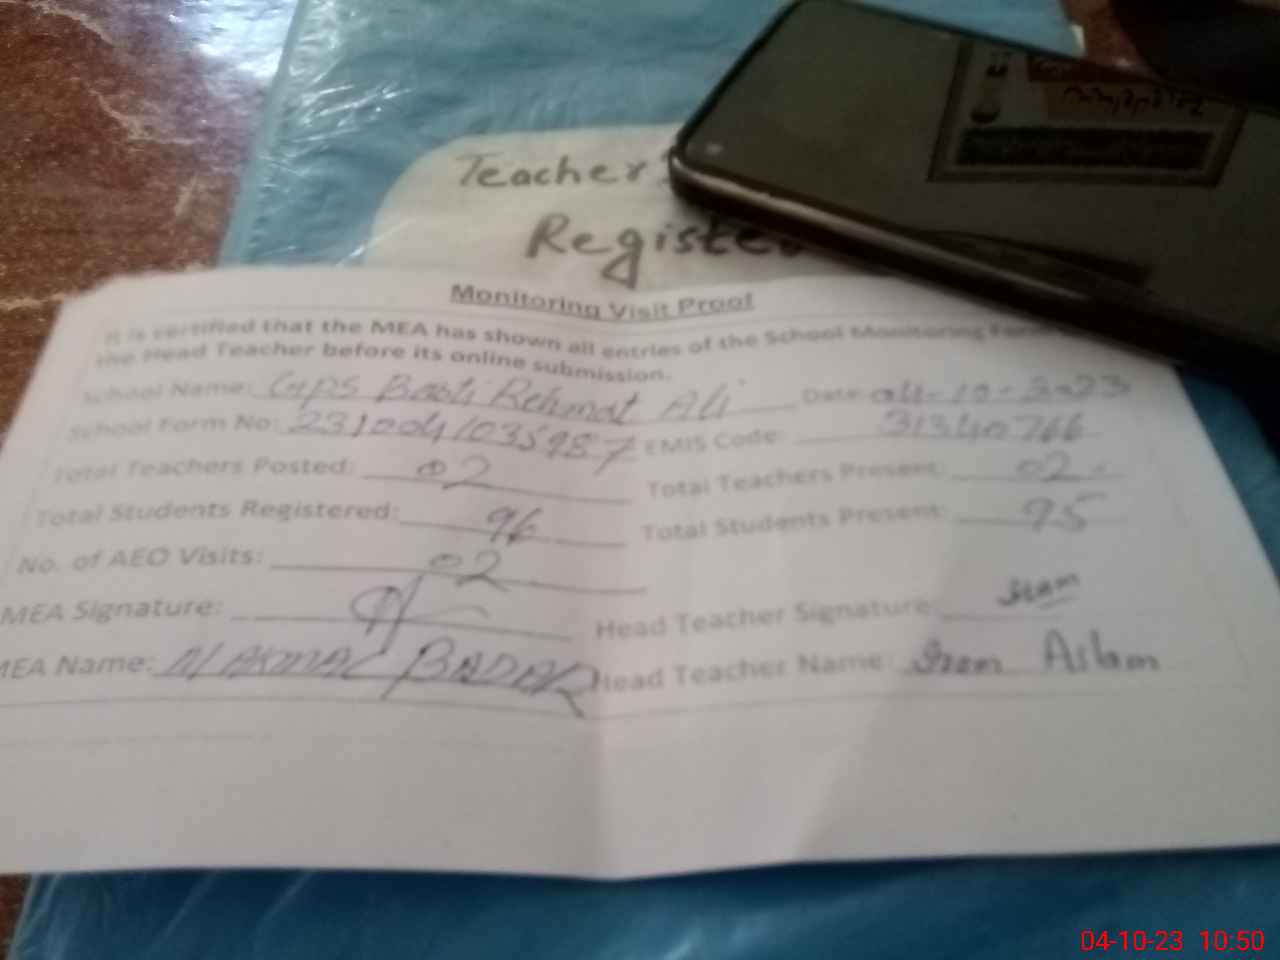 Teacher
Register
Monitoring Visit Proof
It is certified that the MEA has shown all entries of the School Monitoring Form
the Head Teacher before its online submission.
School Name: GPS Basti Rehmat Ali Date: 04-10-2023
School Form No: 2310041035987 EMIS Code: 31340766
Total Teachers Posted: 02 Total Teachers Present: 02
Total Students Registered: 96 Total Students Present: 95
No. of AEO Visits: 02
MEA Signature: Head Teacher Signature: Iram
MEA Name: M AKMAL BADAR Head Teacher Name: Iram Aslam
04-10-23 10:50